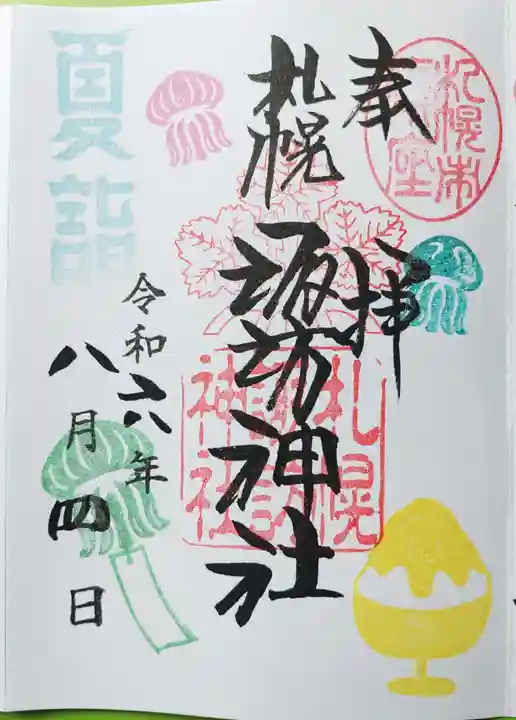 奉拝
札幌諏訪神社
令和六年
八月四日
夏詣
札幌市
札幌
諏訪
神社